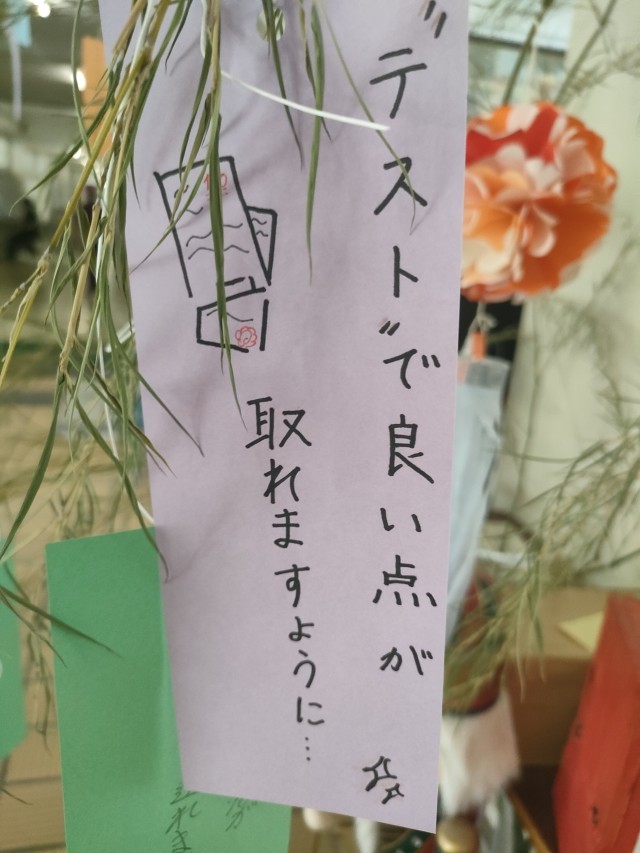 "テスト"で良い点が
取れますように…